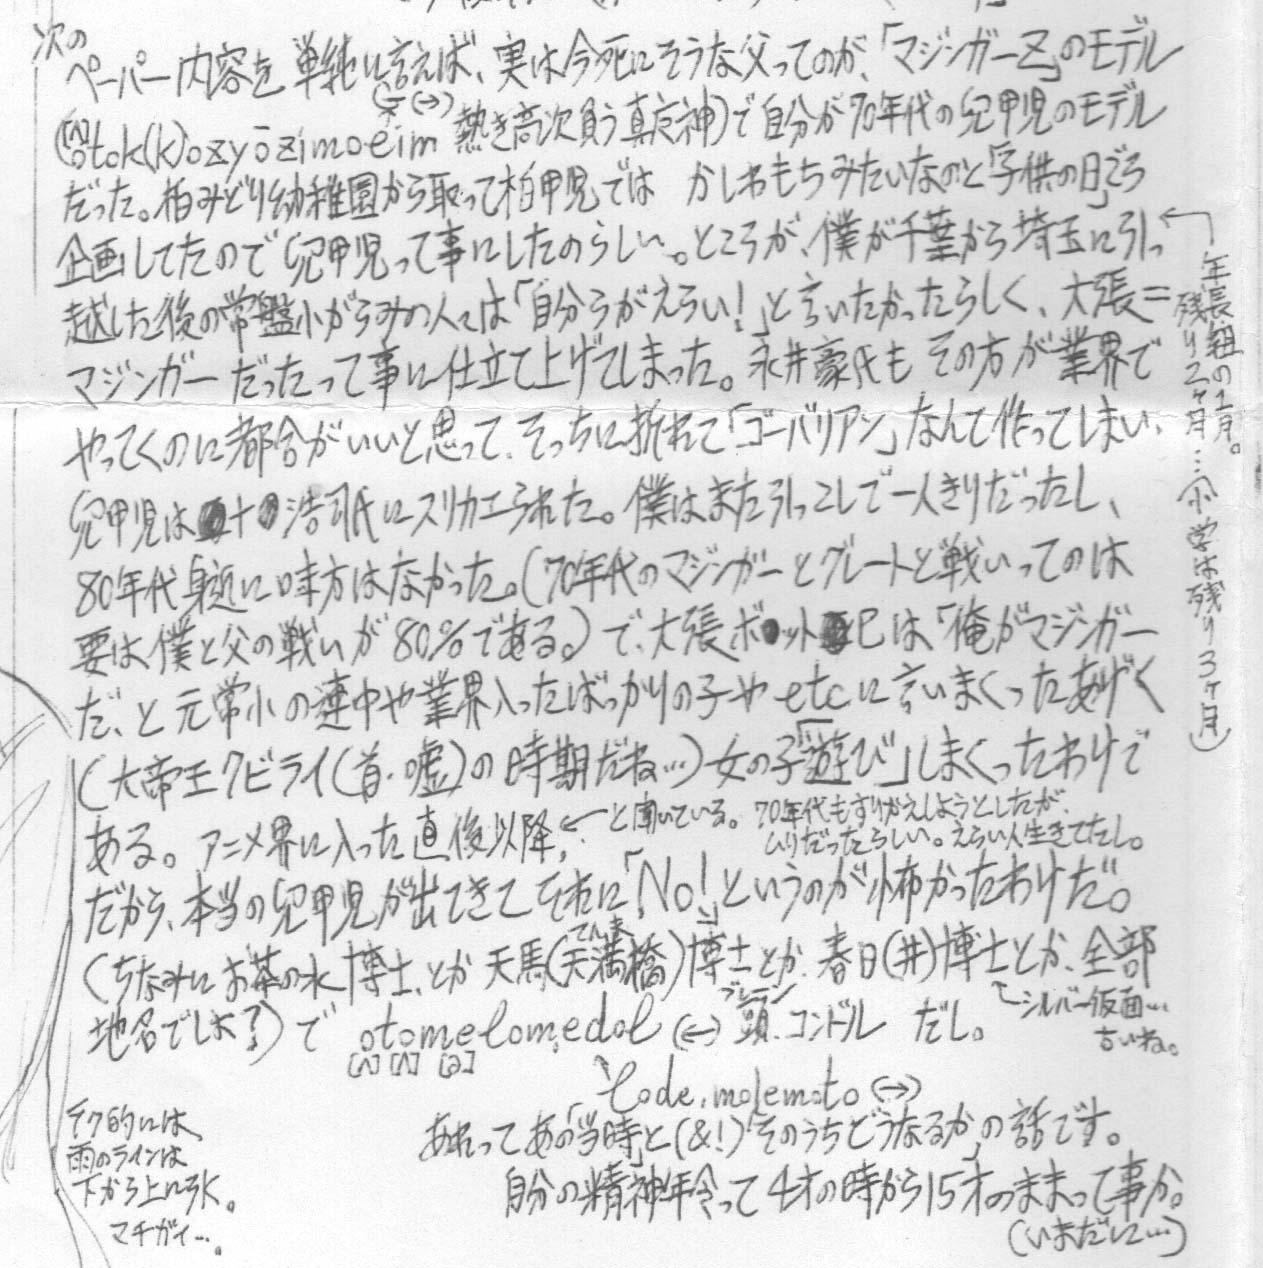 次の
ペーパー内容を単純に言えば、実は今死にそうな父ってのが、「マジンガーZ」のモデル
tok(k)ozyōzimoeim 熱き高次負う真な神)で自分が70年代の兜甲児のモデル
だった。柏みどり幼稚園から取って柏甲児では かしわもちみたいなのと「子供の日」ごろ
企画してたので兜甲児って事にしたのらしい。ところが、僕が千葉から埼玉に引っ
越した後の常盤小がらみの人々は「自分らがえらい!」と言いたかったらしく、大張=
マジンガーだったって事に仕立て上げてしまった。永井豪氏もその方が業界で
やってくのに都合がいいと思って、そっちに折れて「ゴーバリアン」なんて作ってしまい、
兜甲児は 浩司氏にスリカエられた。僕はまた引っこしで一人きりだったし、
80年代身近に味方はなかった。(70年代のマジンガーとグレートと戦いってのは
要は僕と父の戦いが80%である。)で、大張ボ ットは「俺がマジンガー
だ、と元常小の連中や業界入ったばっかりの子やetcに言いまくったあげく
(大帝王クビライ(首・嘘)の時期だね…)女の子「遊び」しまくったわけで
ある。アニメ界に入った直後以降、←と聞いている。70年代もすりかえしようとしたが、
ムリだったらしい。えらい人生きてたし。
だから、本当の兜甲児が出てきてそれに「No!」というのが怖かったわけだ。
(ちなみにお茶の水博士、とか天馬(天満橋)博士とか、春日(井)博士とか、全部
てんま
シルバー仮面…
古いね。
地名でしょ?)で otomelomedol (↔) 頭、コンドル だし。
ブレーン
[ʌ] [ʌ]
lode.molemoto (↔)
あれってあの「当時」と(&!)「そのうちどうなるか」の話です。
自分の精神年令って4才の時から15才のままって事か。
(いまだに…)
年長組の1月。
残り2ヶ月…(小学は残り3ヶ月)
テク的には、
雨のラインは
下から上に引く。
マチガイ…。